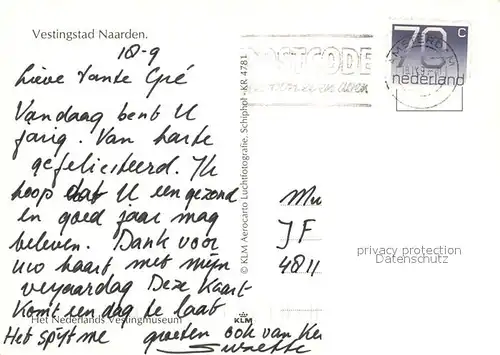 Vestingstad Naarden.
18-9
Lieve Tante Gré
Vandaag bent U
jarig. Van harte
gefeliciteerd. Ik
hoop dat U een gezond
en goed jaar mag
beleven. Dank voor
uw kaart met mijn
verjaardag Deze Kaart
Komt een dag te laat
Het Nederlands Vestingmuseum
Het spijt me groeten ook van Ke
Suzette
© KLM Aerocarto Luchtfotografie, Schiphol - KR 4781
KLM
POSTCODE
70 c
nederland
JF
4811
privacy protection
Datenschutz